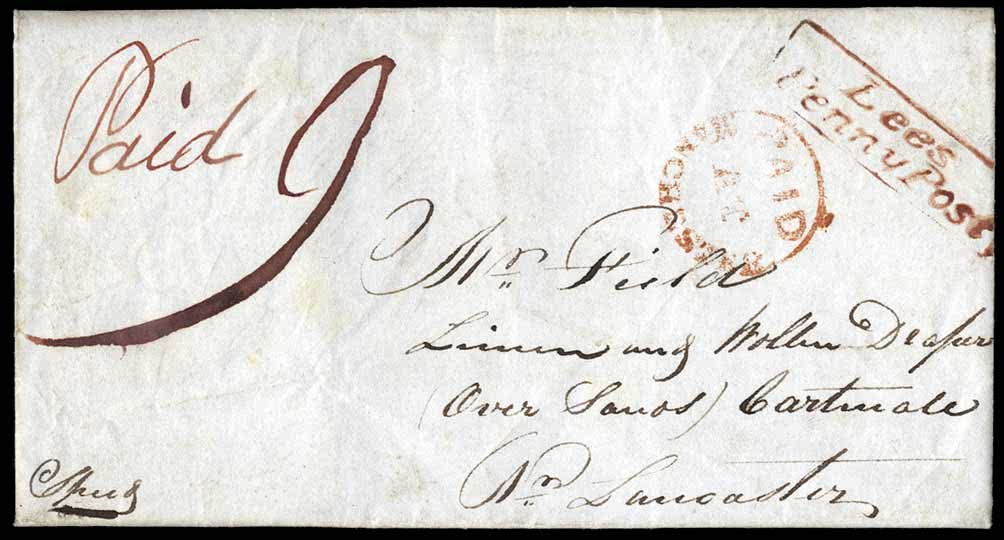 Paid 9
Lees
Penny Post
PAID
MANCHESTER
Mr. Field
Linnen and Wollen Draper
(Over Sands) Cartmale
Nr. Lancaster
Speed